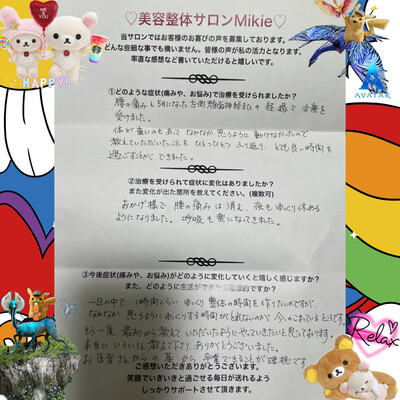 ♡美容整体サロンMikie♡
当サロンではお客様のお喜びの声を募集しております。
どんな些細な事でも構いません。皆様の声が私の活力となります。
率直な感想など書いていただけると嬉しいです。
①どのような症状(痛みや、お悩み)で治療を受けられましたか?
腰の痛みと5月になった左側顔面神経まひの経過で治療を
受けました。
体が重いのもあって なかなか思うように動けなかったので
教えていただいたことを ひとつひとつ ふり返り、とても良い時間を
過ごす事ができました。
②治療を受けられて症状に変化はありましたか?
また変化が出た箇所を教えてください。(複数可)
おかげ様で 腰の痛みは消え、夜もゆっくり休める
ようになりました。呼吸も楽になってきました。
③今後症状(痛みや、お悩み)がどのように変化していくと嬉しく感じますか?
また、どのように生活ができたら理想的ですか?
一日の中で 1時間くらい ゆっくり 整体の時間を作りたいのですが、
なかなか 思うようにゆっくりする時間がとれないのが 今のこまっているところです。
もう一度 最初から 教えていただいたことをやっていきたいと思っております。
本当にいろいろと教えて下さり、ありがとうございました。
お医者さんからの 薬 から 卒業できることが 理想です
ご感想いただきありがとうございます。
笑顔でいきいきと過ごせる毎日が送れるよう
しっかりサポートさせて頂きます。
ME ♥ YOU
HAPPY!
AVATAR
Relax